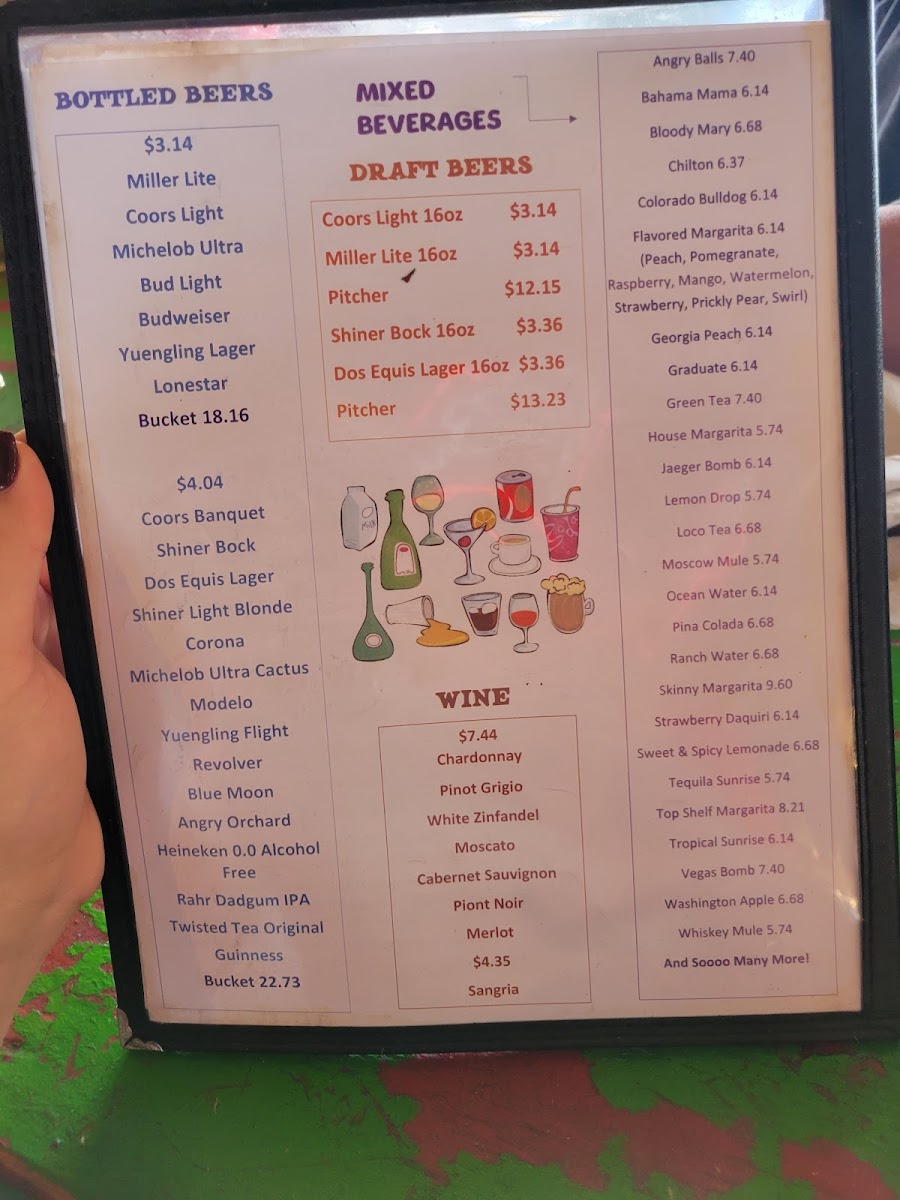 BOTTLED BEERS
$3.14
Miller Lite
Coors Light
Michelob Ultra
Bud Light
Budweiser
Yuengling Lager
Lonestar
Bucket 18.16
$4.04
Coors Banquet
Shiner Bock
Dos Equis Lager
Shiner Light Blonde
Corona
Michelob Ultra Cactus
Modelo
Yuengling Flight
Revolver
Blue Moon
Angry Orchard
Heineken 0.0 Alcohol
Free
Rahr Dadgum IPA
Twisted Tea Original
Guinness
Bucket 22.73
MIXED
BEVERAGES
DRAFT BEERS
Coors Light 16oz $3.14
Miller Lite 16oz $3.14
Pitcher $12.15
Shiner Bock 16oz $3.36
Dos Equis Lager 16oz $3.36
Pitcher $13.23
Milk
WINE
$7.44
Chardonnay
Pinot Grigio
White Zinfandel
Moscato
Cabernet Sauvignon
Piont Noir
Merlot
$4.35
Sangria
Angry Balls 7.40
Bahama Mama 6.14
Bloody Mary 6.68
Chilton 6.37
Colorado Bulldog 6.14
Flavored Margarita 6.14
(Peach, Pomegranate,
Raspberry, Mango, Watermelon,
Strawberry, Prickly Pear, Swirl)
Georgia Peach 6.14
Graduate 6.14
Green Tea 7.40
House Margarita 5.74
Jaeger Bomb 6.14
Lemon Drop 5.74
Loco Tea 6.68
Moscow Mule 5.74
Ocean Water 6.14
Pina Colada 6.68
Ranch Water 6.68
Skinny Margarita 9.60
Strawberry Daquiri 6.14
Sweet & Spicy Lemonade 6.68
Tequila Sunrise 5.74
Top Shelf Margarita 8.21
Tropical Sunrise 6.14
Vegas Bomb 7.40
Washington Apple 6.68
Whiskey Mule 5.74
And Soooo Many More!